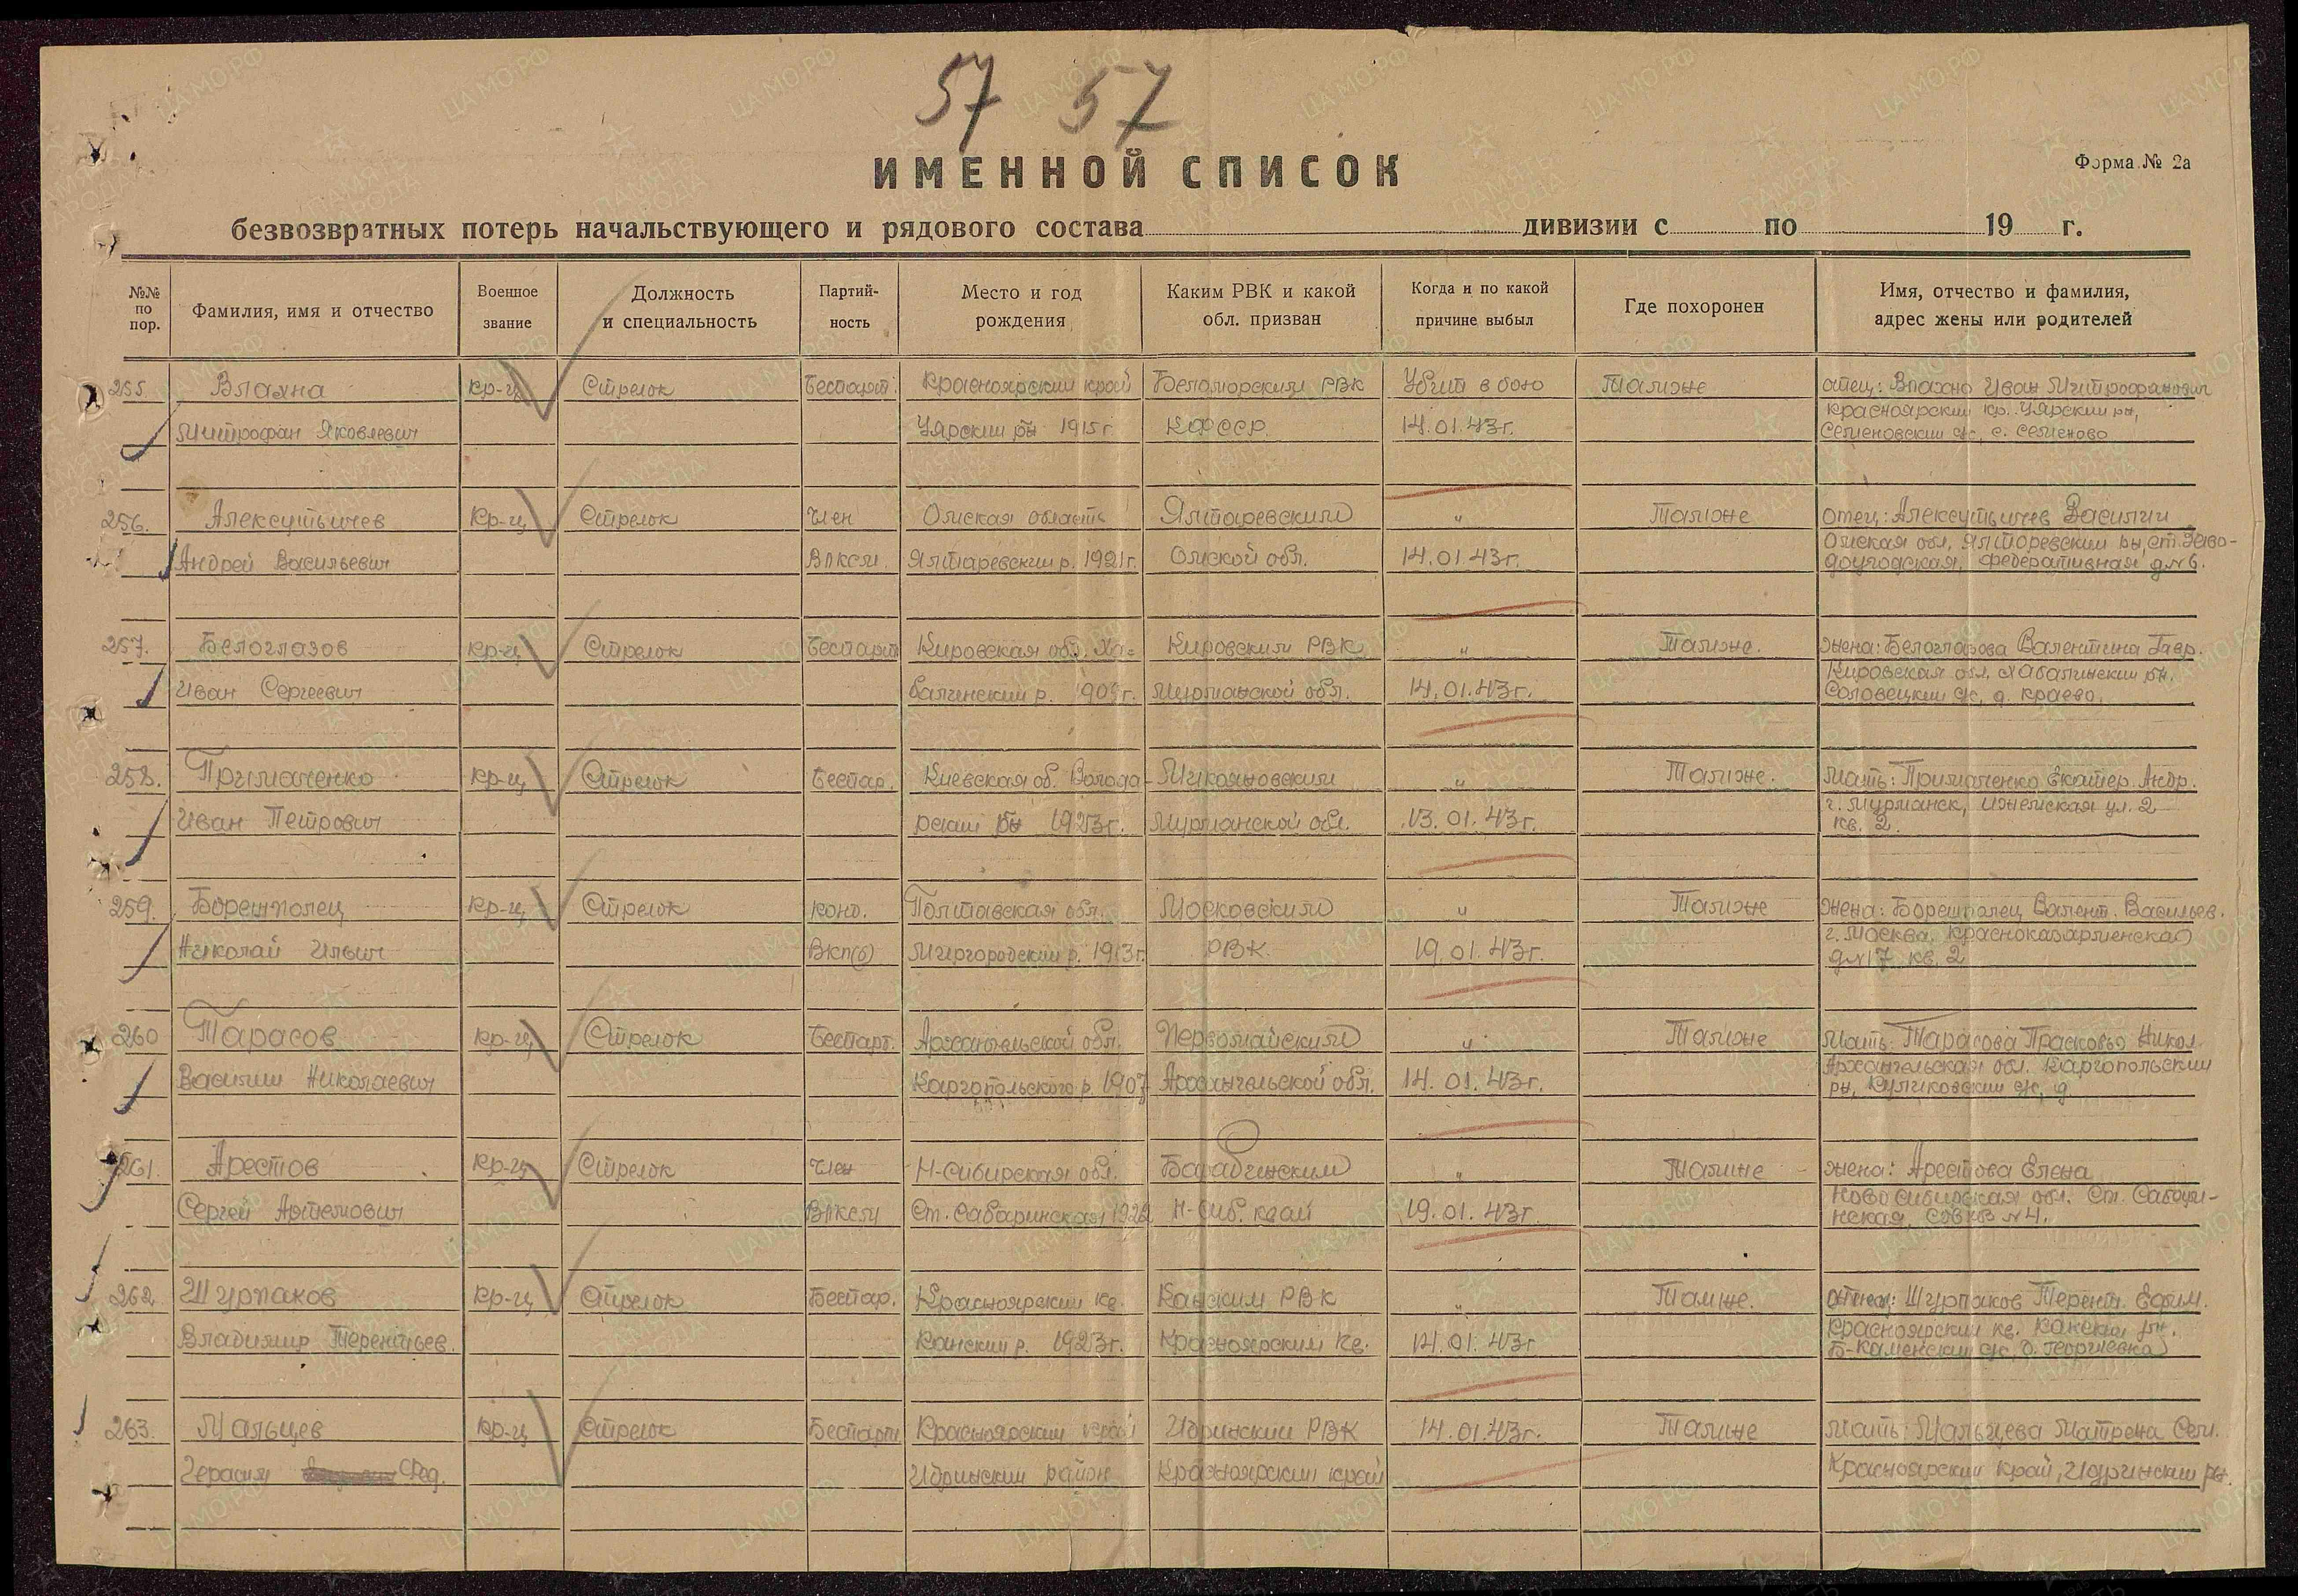 57 57
ИМЕННОЙ СПИСОК
Форма № 2а
безвозвратных потерь начальствующего и рядового состава дивизии с по 19 г.
№№ по пор.
Фамилия, имя и отчество
Военное звание
Должность и специальность
Партий-ность
Место и год рождения
Каким РВК и какой обл. призван
Когда и по какой причине выбыл
Где похоронен
Имя, отчество и фамилия, адрес жены или родителей
255 Влахна кр-ц Стрелок Беспарт. Красноярский край Беломорским РВК Убит в бою Талоне отец: Влахно Иван Митрофанович
Митрофан Яковлевич Уярский р-н 1915 г. КФССР 14.01.43 г. Красноярский кр. Уярский р-н,
Семеновский с/с, с. Семеново
256. Алексутьичев кр-ц Стрелок Член Омская область Ялтаревским " отец: Алексутьичев Василий
Андрей Васильевич ВЛКСМ Ялтаревский р. 1921 г. Омской обл. 14.01.43 г. Омская обл, Ялторевский р-н, ст. Заво-
доугодская, Федеративная д№6.
257. Белоглазов кр-ц Стрелок Беспарт Кировская обл. Ха= Кировским РВК " жена: Белоглазова Валентина Гавр.
Иван Сергеевич балинский р. Мурманской обл. 14.01.43 г. Кировская обл, Хабалинский р-н.
Соловецкий с/с, д. Краево.
258. Примаченко кр-ц Стрелок Беспар. Киевская об. Волода- Микояновским " Мать: Примаченко Екатер. Андр.
Иван Петрович рский р-н 1923 г. Мурманской обл. 13.01.43 г. г. Мурманск, Ижемская ул. 2
кв. 2.
259. Борешполец кр-ц Стрелок канд. Полтавская обл. Московским " жена: Борешполец Валент. Васильев.
Николай Ильич ВКП(б) Миргородский р. 1913 г. РВК. 19.01.43 г. г. Москва, Красноказарменская
д№17 кв. 2
260 Тарасов кр-ц Стрелок Беспарт. Архангельской обл. Первомайским " Мать: Тарасова Прасковья Никол.
Василий Николаевич Каргопольского р. 1907 Архангельской обл. 14.01.43 г. Архангельская обл. Каргопольский
р-н, Куликовский с/с, д
261. Арестов кр-ц Стрелок Член Н-Сибирская обл. Барабинским " жена: Арестова Елена
Сергей Артемович ВЛКСМ Ст. Сабаринская 1922 Н-Сиб. край 19.01.43 г. Ново Сибирская обл. Ст.
нская, №4.
262. Шурпаков кр-ц Стрелок Беспар. Красноярский кр. Канским РВК " отец: Шурпаков Терент. Ефим.
Владимир Терентьев. Канский р. 1923 г. Красноярский кр. 14.01.43 г Красноярский кр. Канский р-н.
Б-Каменский с/с, д. Георгиевка
263. Мальцев кр-ц Стрелок Беспарти Красноярский край Идринский РВК 14.01.43 г. Мать: Мальцева Матрена Сем.
Герасим Фед. Идринский район Красноярский край Красноярский край, Идринский р-н.